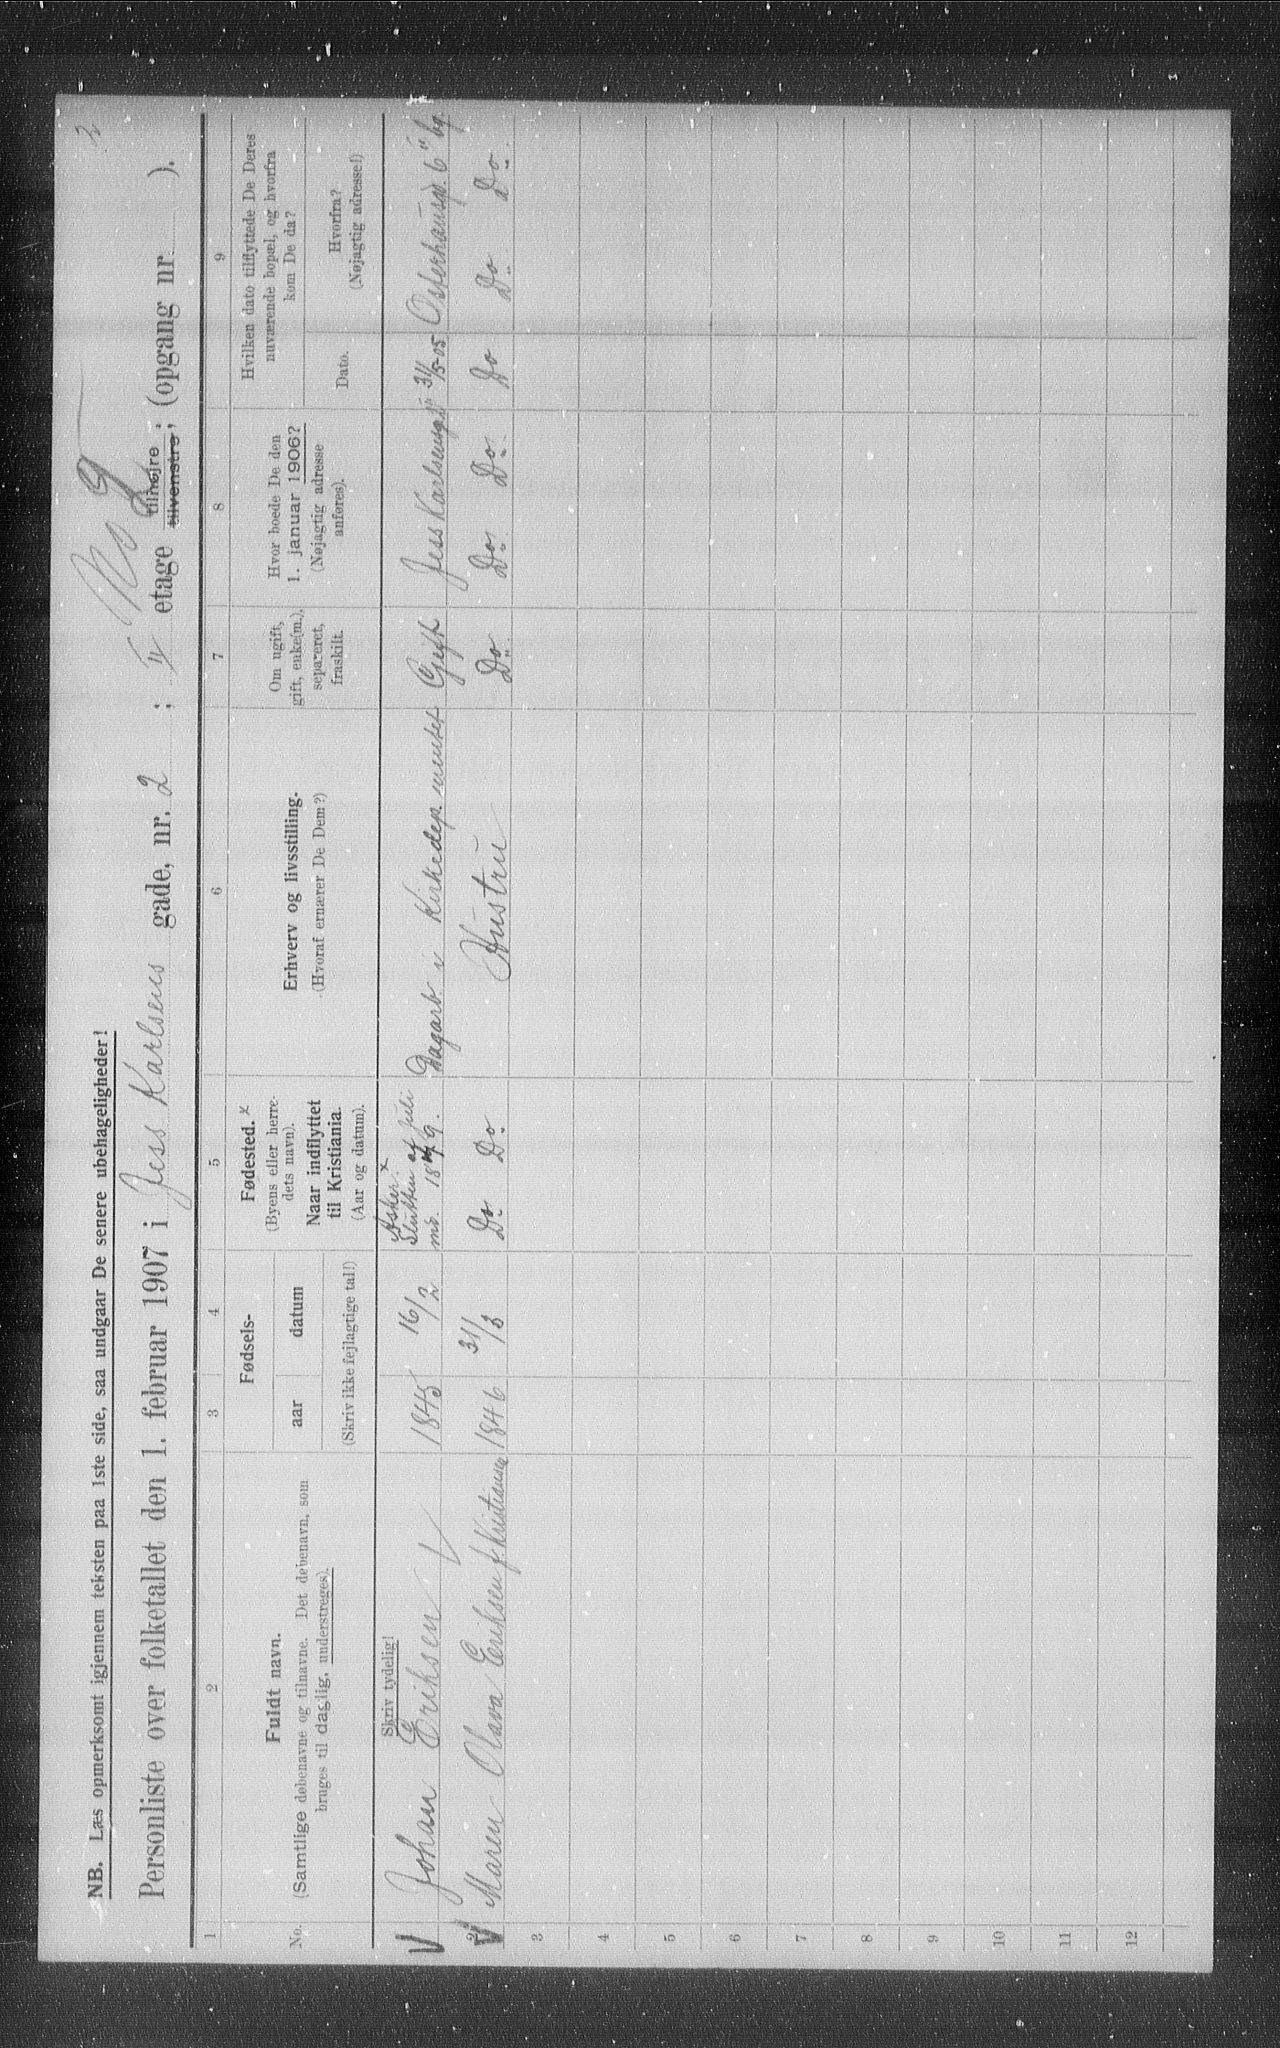 2
NB. Læs opmerksomt igjennem teksten paa 1ste side, saa undgaar De senere ubehageligheder!
No 9
Personliste over folketallet den 1. februar 1907 i Jess Karlsens gade, nr. 2 ; 4 etage tilhøjre tilvenstre; (opgang nr ).
1 2 3 4 5 6 7 8 9
No.
Fuldt navn.
(Samtlige døbenavne og tilnavne. Det døbenavn, som
bruges til daglig, understreges).
Fødsels-
aar datum
(Skriv ikke fejlagtige tal!)
Fødested. x
(Byens eller herre-
dets navn).
Naar indflyttet
til Kristiania.
(Aar og datum).
Erhverv og livsstilling.
(Hvoraf ernærer De Dem?)
Om ugift,
gift, enke(m.),
separeret,
fraskilt.
Hvor boede De den
1. januar 1906?
(Nøjagtig adresse
anføres).
Hvilken dato tilflyttede De Deres
nuværende bopæl, og hvorfra
kom De da?
Dato.
Hvorfra?
(Nøjagtig adresse!)
Skriv tydelig!
Asker x
Slutten af juli
V Johan Eriksen V 1845 16/2 md. 1879. Dagarb. i Kirkedep. mentet Gift Jess Karlsensgd 31/5-05 Osterhausgd. 6 bg
2 V Maren Olava Eriksen f. Kristiansen 1846 31/3 Do. Do. Hustru Do. Do. Do. Do Do. Do.
3
4
5
6
7
8
9
10
11
12